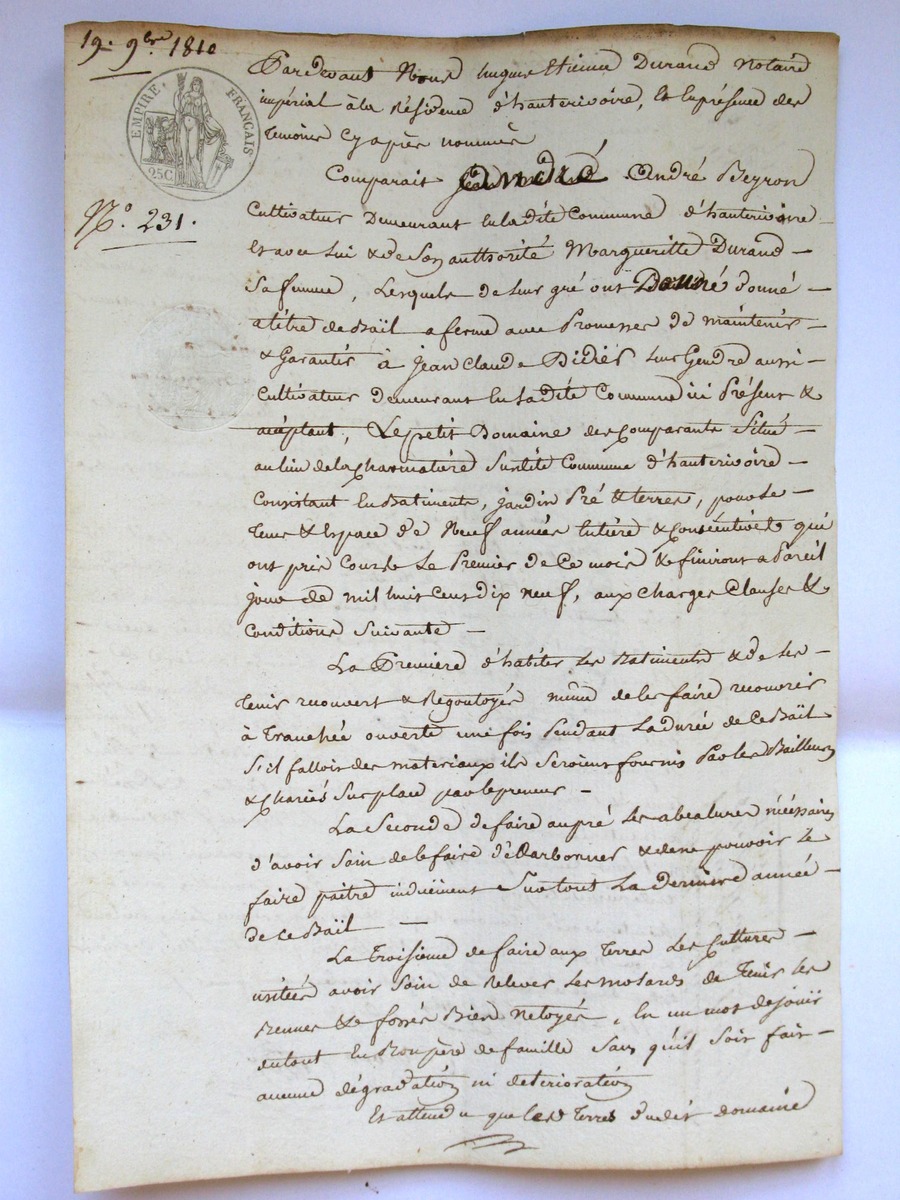 19. 9bre 1810
EMPIRE FRANÇAIS
25C
No. 231.
Pardevant Nous hugues Etienne Durand Notaire
impérial à la Résidence d'hauterivoire, et en présence des
temoins Cyaprès nommés
Comparait André Beyron
Cultivateur Demeurant en ladite Commune d'hauterivoire
et avec lui & de son authorité Margueritte Durand
Sa femme, Lesquels de leur gré ont Donné donné
atitre de Bail a ferme avec Promesses de maintenir
& Garantir à Jean Claude Didier leur Gendre aussi
Cultivateur demeurant en ladite Commune ici Présent &
acceptant, Le petit Domaine des Comparants Situé
au lieu de la Charmatière Sur ladite Commune d'hauterivoire
Consistant en Batiments, jardin Pré & terres, pour le
tems & Espace de Neuf années entière & Consécutives qui
ont pris Course Le Premier de Ce mois & finiront a Pareil
jour de mil huit Cent dix Neuf, aux Charges Clauses &
Conditions Suivante
La Premiere d'habiter les Batiments & de les
tenir recouvert & Regoutoyés même de les faire recouvrir
à Tranchée ouverte une fois Pendant La durée de Ce Bail
S'il falloit des materiaux ils Seroient fournis Par les Bailleurs
& Chariés Sur place par le preneur
La Seconde de faire au pré Les abealures nécéssaires
d'avoir Soin de le faire & de ne pouvoir le
faire paitre induëment Surtout La derniere année
de Ce Bail
La Troisieme de faire aux Terres Les Cultures
usitées avoir Soin de Relever Les motards de Tenir les
& le fossés Bien Netoyés, En un mot de jouir
du tout En Bon père de famille Sans qu'il Soit fait
aucune dégradation ni deterioration
Et attendu que les Terres dudit domaine